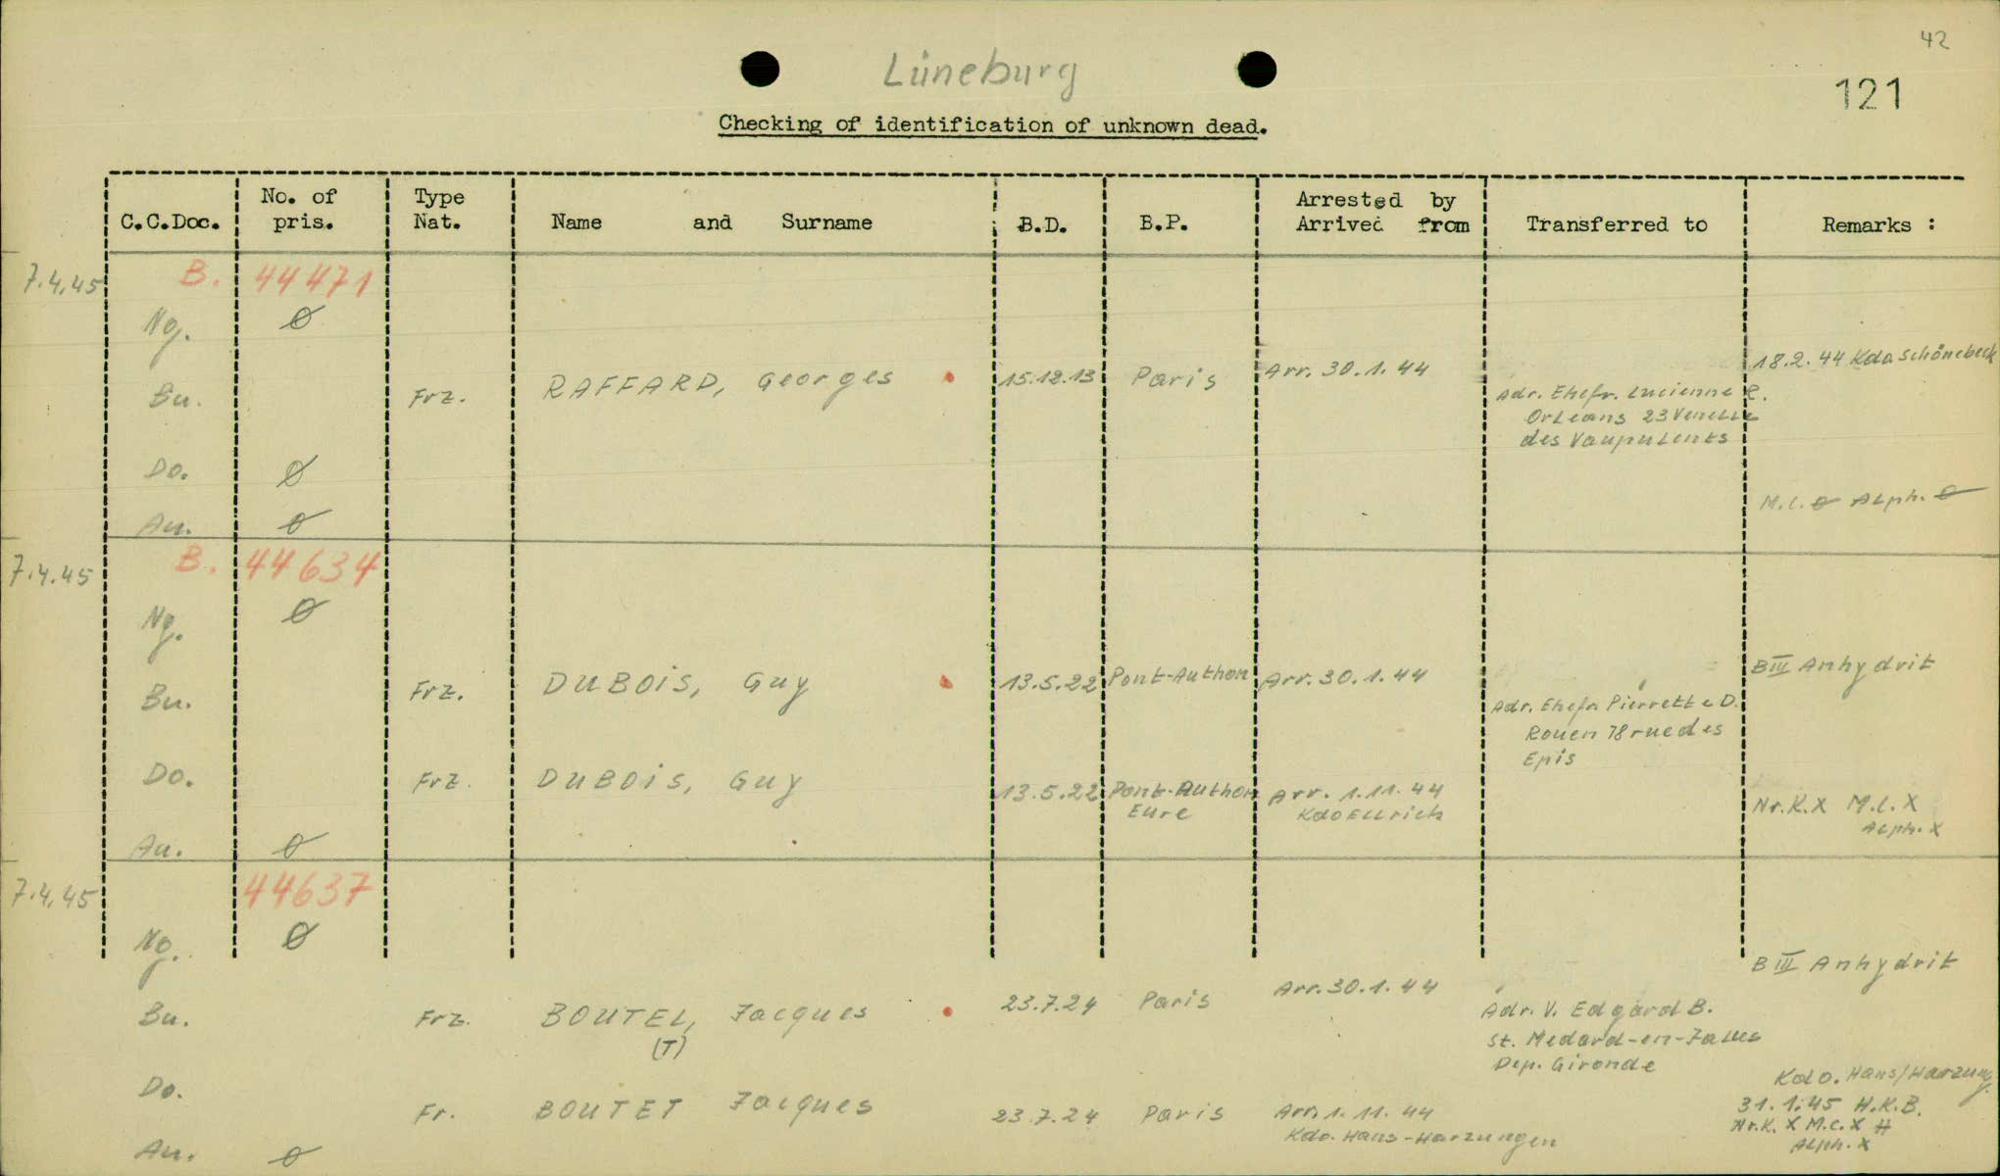 42
Lüneburg
121
Checking of identification of unknown dead.
C.C.Doc. No. of pris. Type Nat. Name and Surname B.D. B.P. Arrested by Arrived from Transferred to Remarks :
7.4.45 B. 44471
Ng. Ø
18.2.44 Kdo Schönebeck
Bu. Frz. RAFFARD, Georges 15.12.13 Paris Arr. 30.1.44
Adr. Ehefr. Lucienne R.
Orleans 23 Venelle
des Vaupulents
Do. Ø
M.C. Ø Alph. Ø
Au. Ø
7.4.45 B. 44634
Ng. Ø
BIII Anhydrit
Bu. Frz. DUBOIS, Guy 13.5.22 Pont-Authon Arr. 30.1.44
Adr. Ehefr Pierrette D.
Rouen 78 rue des
Epis
Do. Frz. DUBOIS, Guy 13.5.22 Pont-Authon Eure Arr. 1.11.44 Kdo Ellrich
Nr.K.X M.C.X
Alph. X
Au. Ø
7.4.45 44637
Ng. Ø
B III Anhydrit
Bu. Frz. BOUTEL, Jacques 23.7.24 Paris Arr. 30.1.44
(T)
Adr. V. Edgard B.
St. Medard-en-Jalles
Dep. Gironde
Do. Fr. BOUTET Jacques 23.7.24 Paris Arr. 1.11.44
Kdo. Hans-Harzungen
Kdo. Hans/Harzung.
31.1.45 H.K.B.
Nr.K. X M.C. X #
Alph. X
Au. Ø